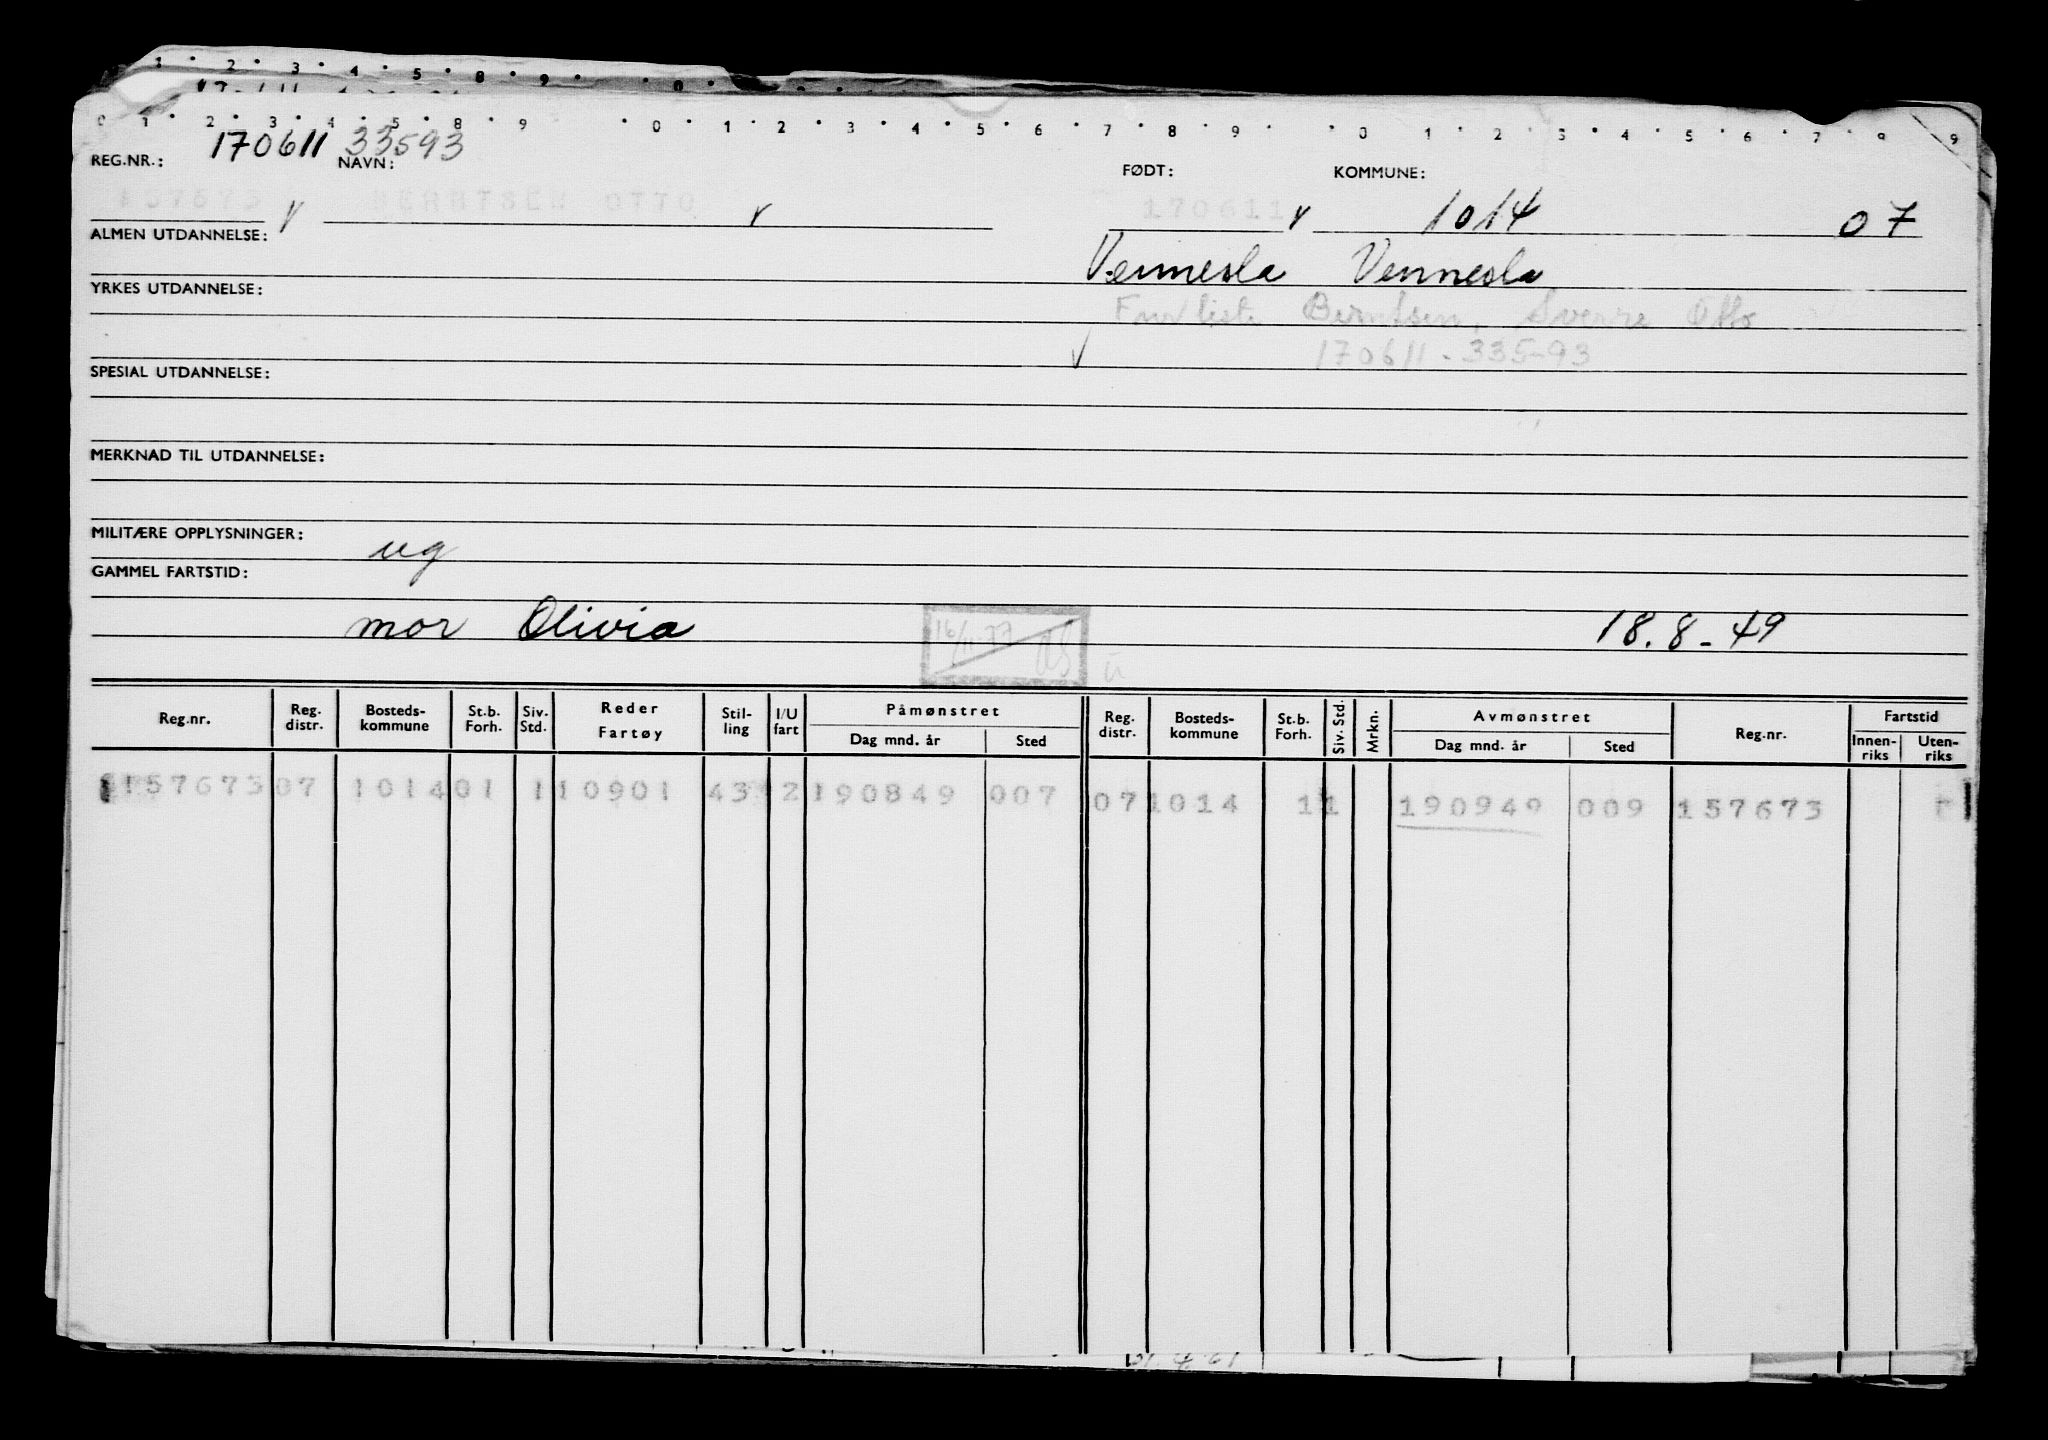 1 2 3 4 5 8 9 0
0 1 2 3 4 5 8 9 0 1 2 3 4 5 6 7 8 9 0 1 2 3 4 5 6 7 9 9
REG.NR.: 170611 33593 NAVN: FØDT: KOMMUNE:
157673 BERNTSEN OTTO 170611 1014 07
ALMEN UTDANNELSE: Vennesla Vennesla
YRKES UTDANNELSE: Berntsen, Sverre Otto
170611-33593
SPESIAL UTDANNELSE:
MERKNAD TIL UTDANNELSE:
MILITÆRE OPPLYSNINGER: ug
GAMMEL FARTSTID:
mor Olivia 16/11-77 18.8-49
Reg.nr. Reg. distr. Bosteds-kommune St.b. Forh. Siv. Std. Reder Fartøy Stil-ling I/U fart Påmønstret Dag mnd. år Sted Reg. distr. Bosteds-kommune St.b. Forh. Siv. Std. Mrkn. Avmønstret Dag mnd. år Sted Reg.nr. Fartstid Innen-riks Uten-riks
157673 07 1014 01 1 10901 43 2 190849 007 07 1014 1 1 190949 009 157673